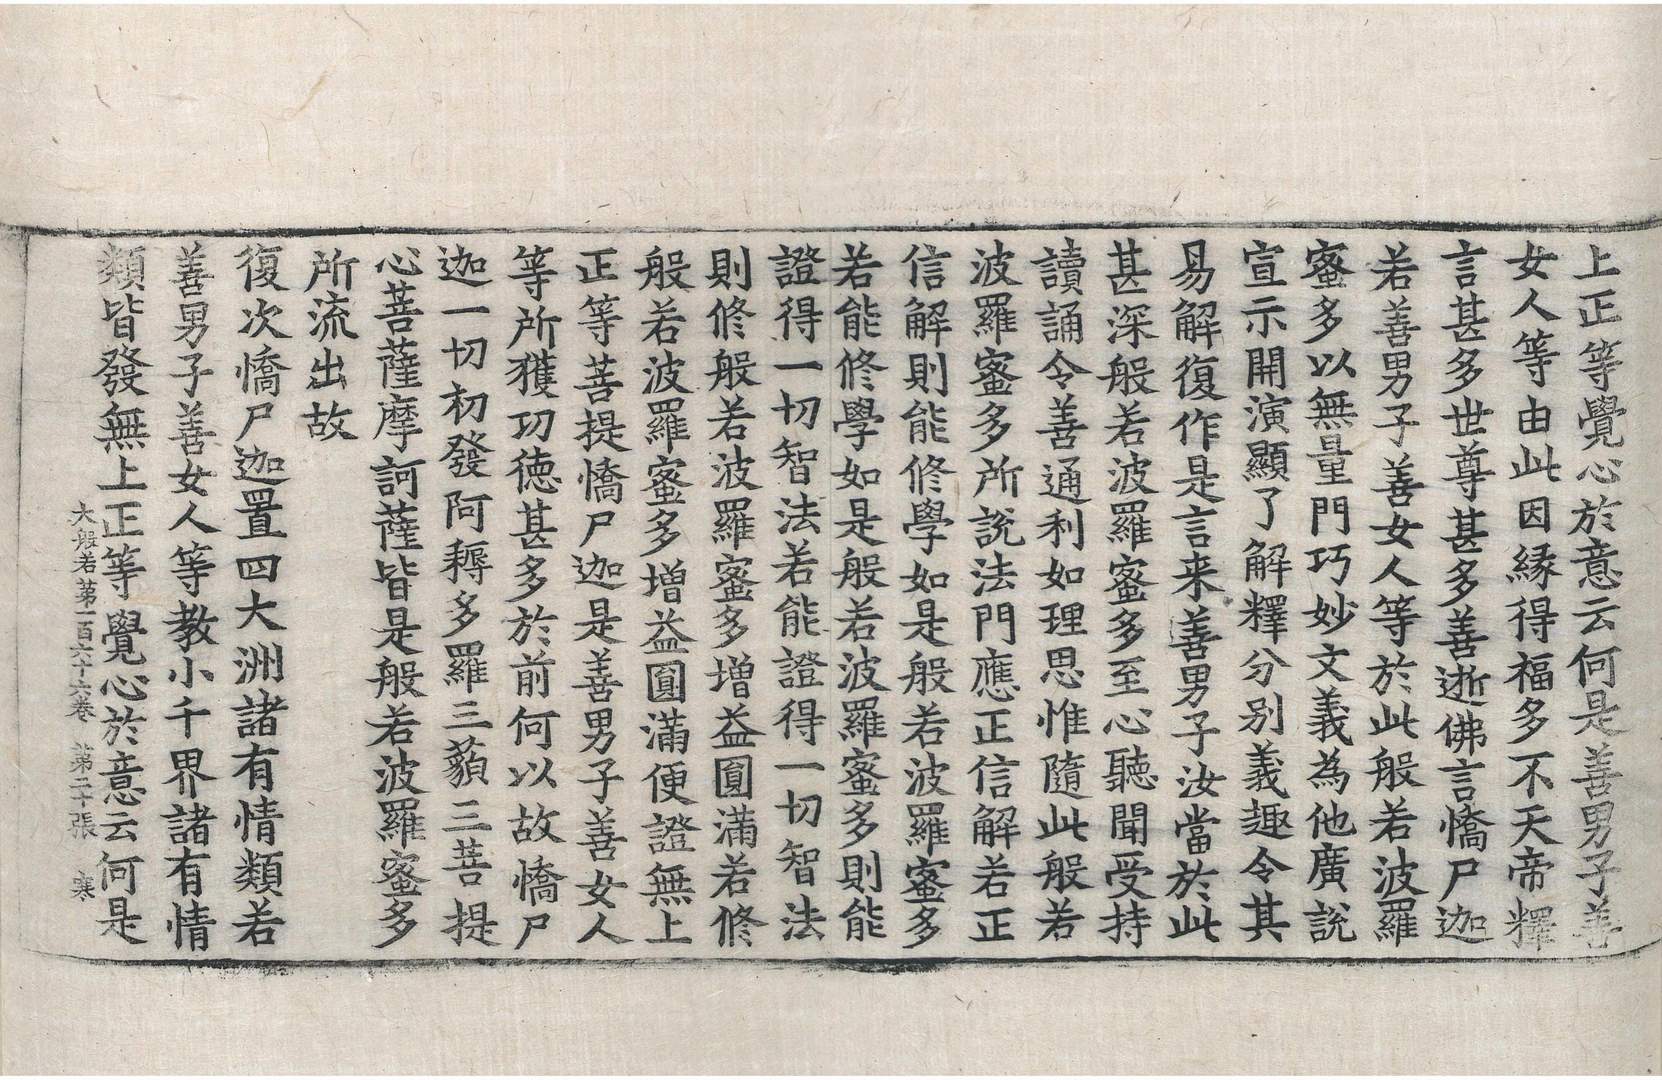 上正等覺心於意云何是善男子善
女人等由此因緣得福多不天帝釋
言甚多世尊甚多善逝佛言憍尸迦
若善男子善女人等於此般若波羅
蜜多以無量門巧妙文義為他廣說
宣示開演顯了解釋分別義趣令其
易解復作是言来善男子汝當於此
甚深般若波羅蜜多至心聽聞受持
讀誦令善通利如理思惟隨此般若
波羅蜜多所說法門應正信解若正
信解則能修學如是般若波羅蜜多
若能修學如是般若波羅蜜多則能
證得一切智法若能證得一切智法
則修般若波羅蜜多增益圓滿若修
般若波羅蜜多增益圓滿便證無上
正等菩提憍尸迦是善男子善女人
等所獲功德甚多於前何以故憍尸
迦一切初發阿耨多羅三藐三菩提
心菩薩摩訶薩皆是般若波羅蜜多
所流出故
復次憍尸迦置四大洲諸有情類若
善男子善女人等教小千界諸有情
類皆發無上正等覺心於意云何是
大般若第一百六十六卷 第二十張 寒